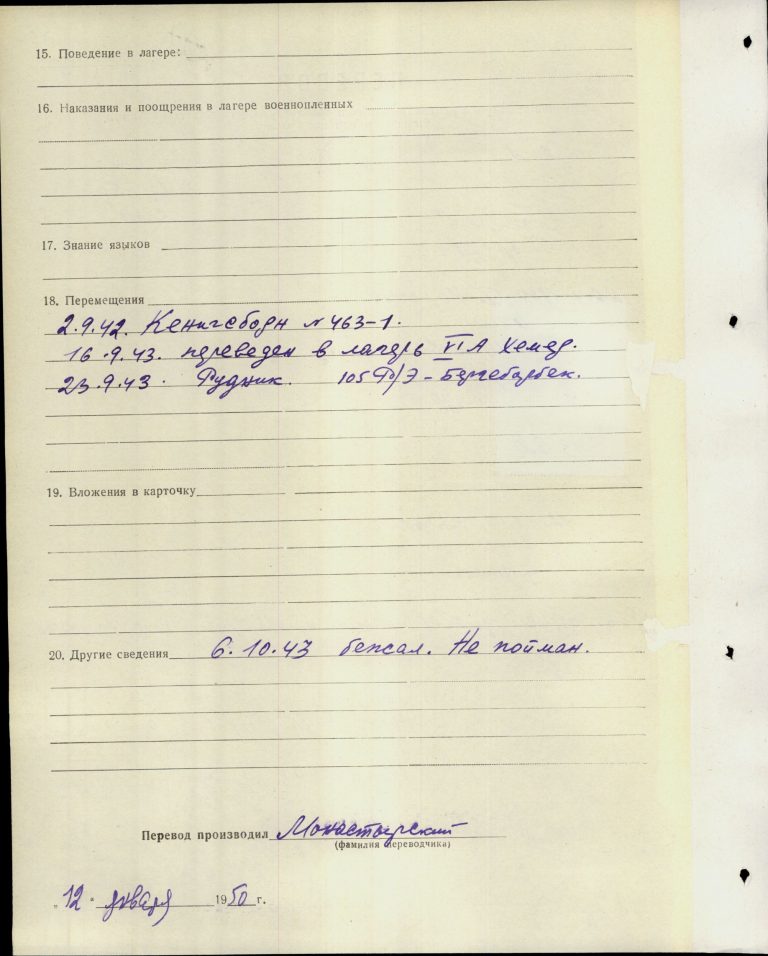 15. Поведение в лагере:
16. Наказания и поощрения в лагере военнопленных
17. Знание языков
18. Перемещения
2.9.42. Кенигсборн № 463-1.
16.9.43. переведен в лагерь VI А Хемер.
23.9.43. Рудник. 105 Ф/Э - Бергеборбек.
19. Вложения в карточку
20. Другие сведения 6.10.43 бежал. Не пойман.
Перевод производил Монастырский
(фамилия переводчика)
„12" января 1950 г.